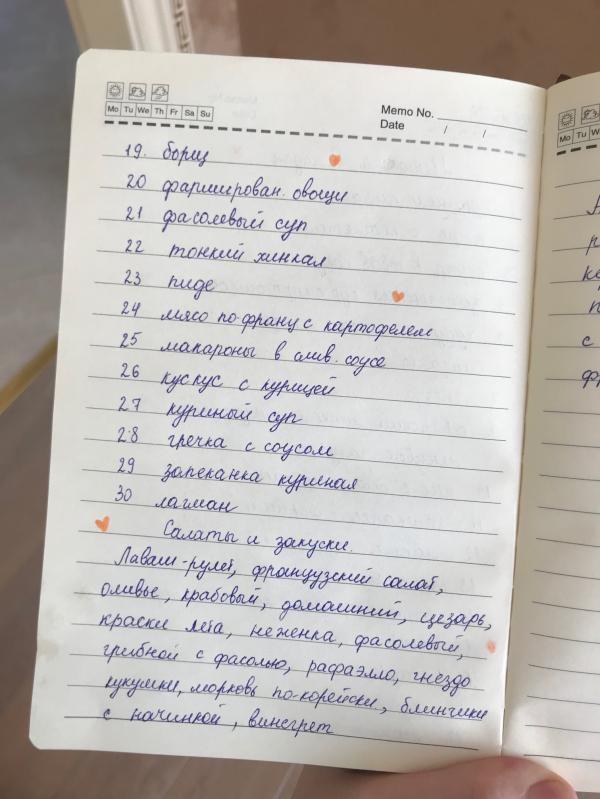 Mo Tu We Th Fr Sa Su
Memo No.
Date / /
19. борщ
20 фармирован. овощи
21 фасолевый суп
22 тонкий хинкал
23 пиде
24 мясо по-франц с картофелем
25 макароны в слив. соусе
26 кускус с курицей
27 куриный суп
28 гречка с соусом
29 запеканка куриная
30 лагман
Салаты и закуски.
Лаваш-рулет, французский салат,
оливье, крабовый, домашний, цезарь,
краски лета, неженка, фасолевый,
грибной с фасолью, рафаэлло, гнездо
кукушки, морковь по-корейски, блинчики
с начинкой, винегрет
Mo Tu W